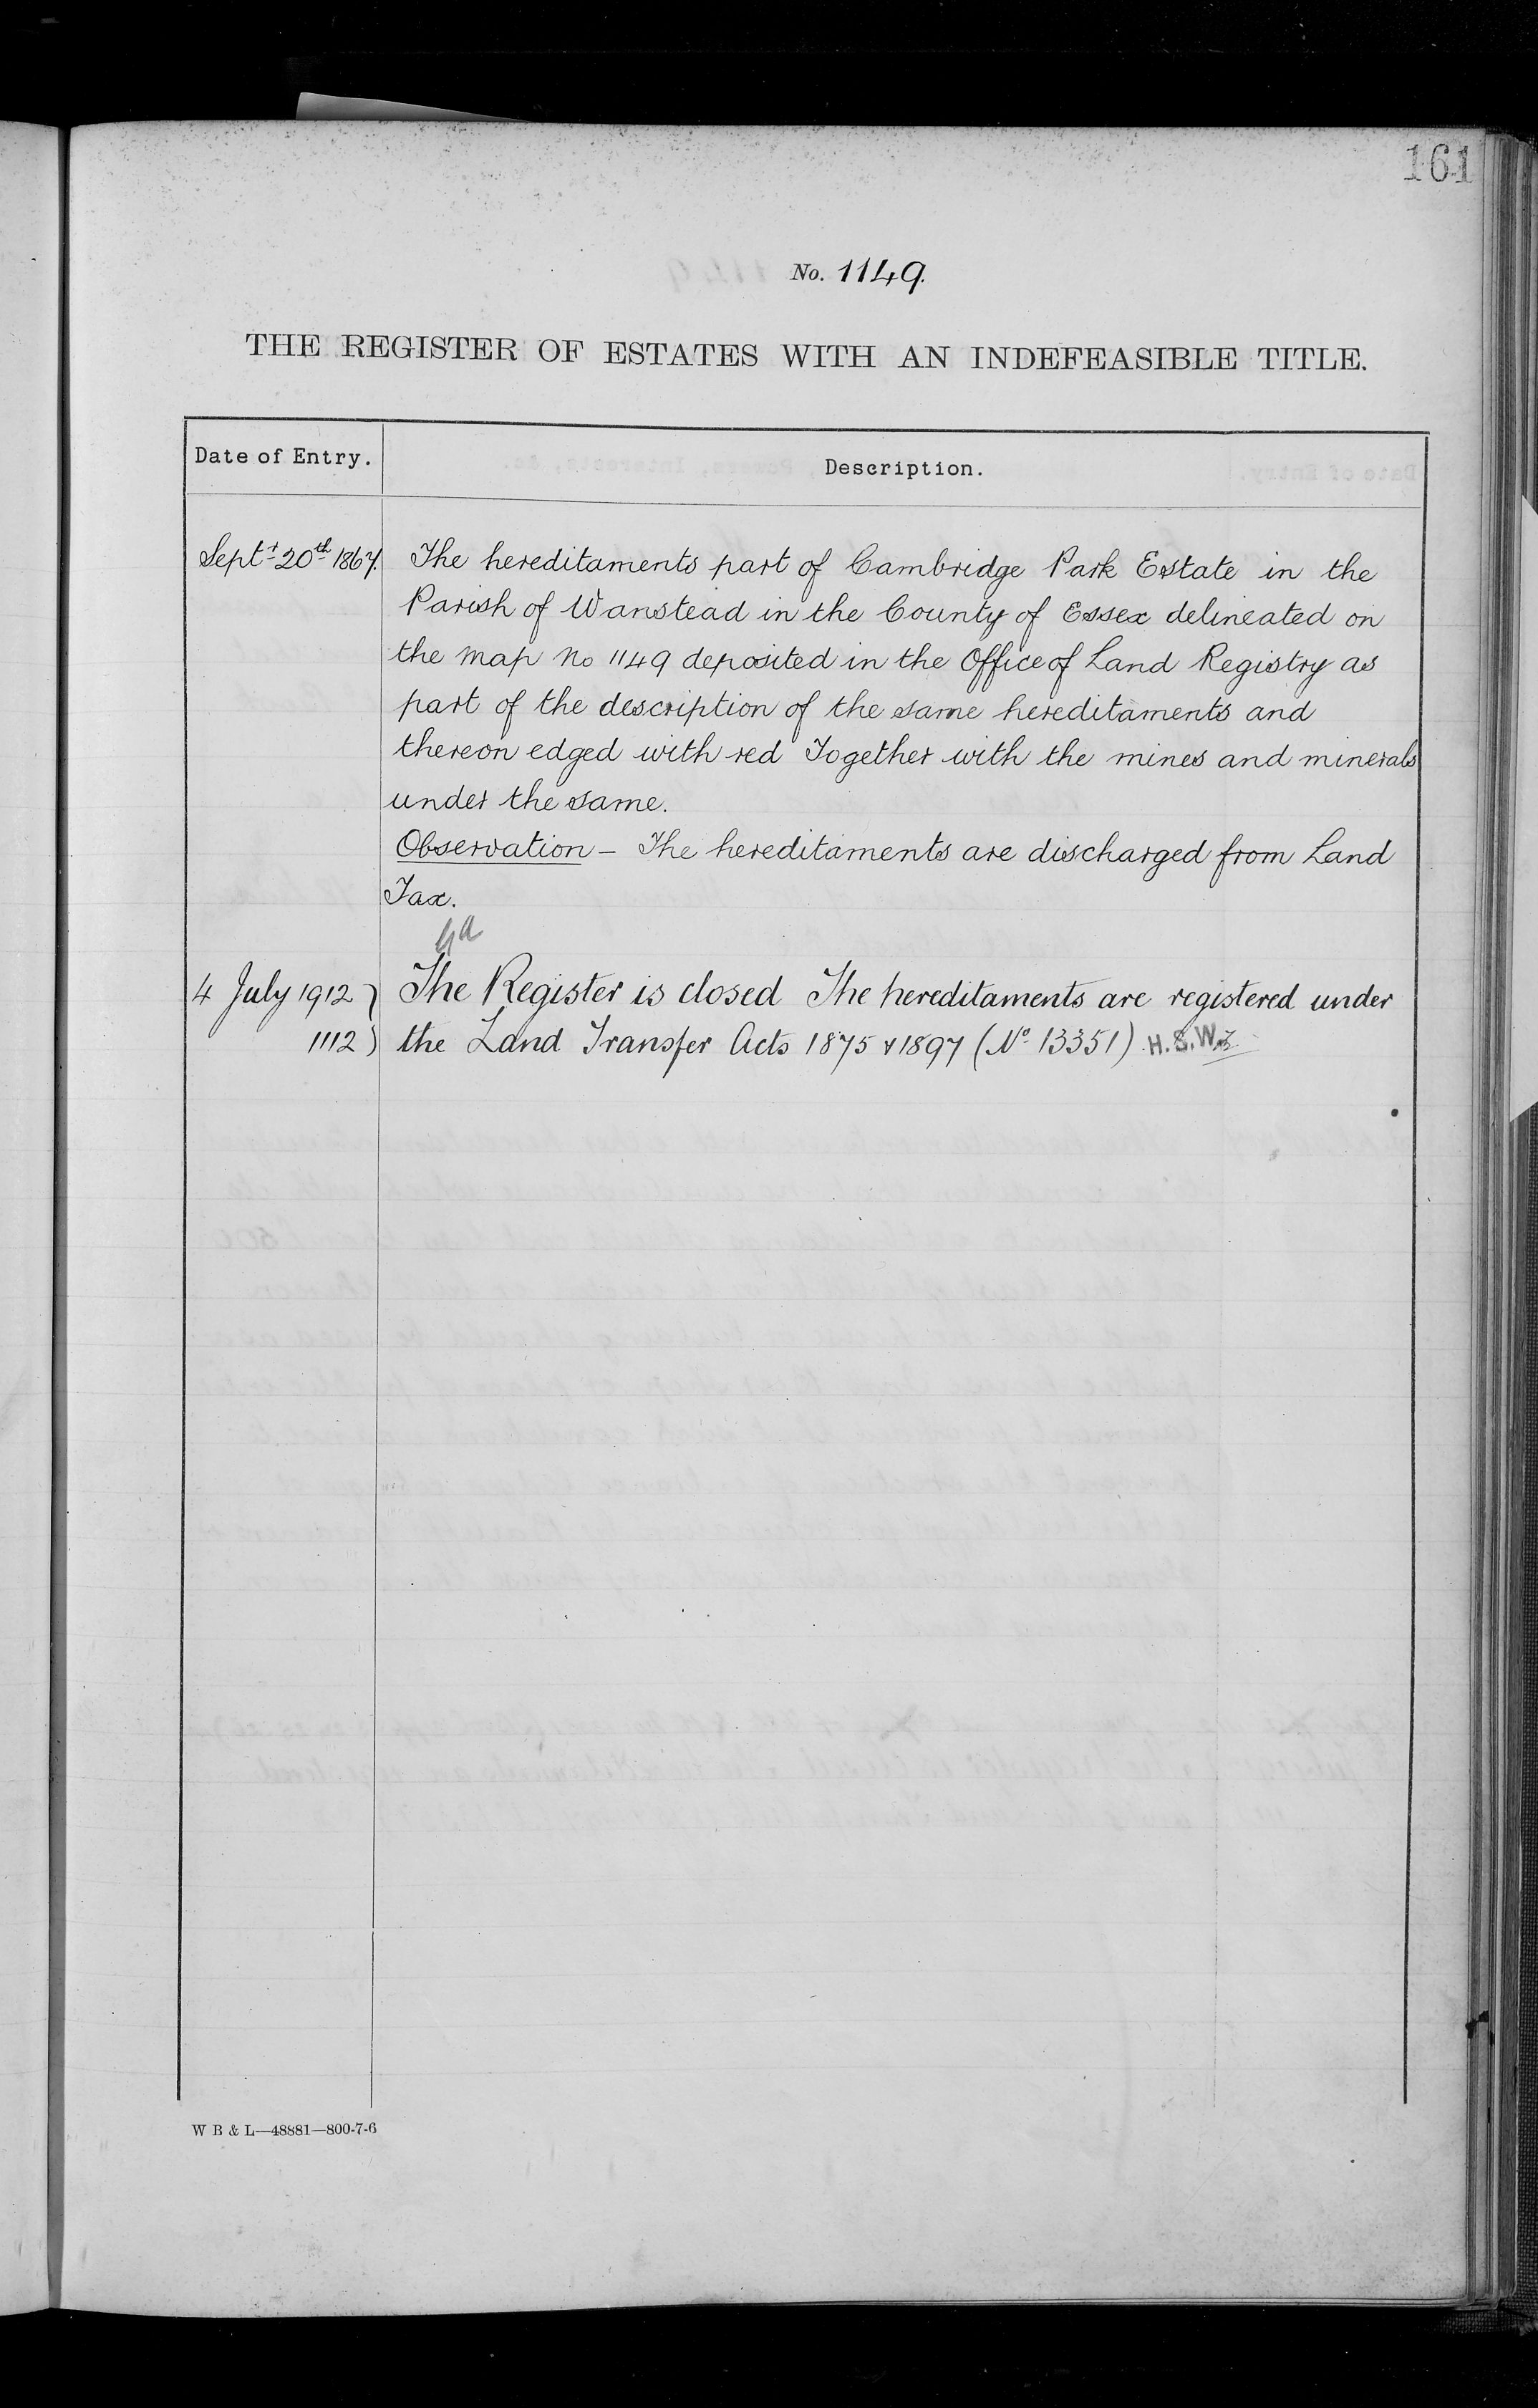 161
No. 1149.
THE REGISTER OF ESTATES WITH AN INDEFEASIBLE TITLE.
Date of Entry.
Description.
Septr 20th 1867. The hereditaments part of Cambridge Park Estate in the
Parish of Wanstead in the County of Essex delineated on
the map No 1149 deposited in the Office of Land Registry as
part of the description of the same hereditaments and
thereon edged with red Together with the mines and minerals
under the same.
Observation – The hereditaments are discharged from Land
Tax.
4 July 1912 } The Register is closed The hereditaments are registered under
1112 } the Land Transfer Acts 1875 & 1897 (No 13351) H.S.W.
W B & L—48881—800-7-6